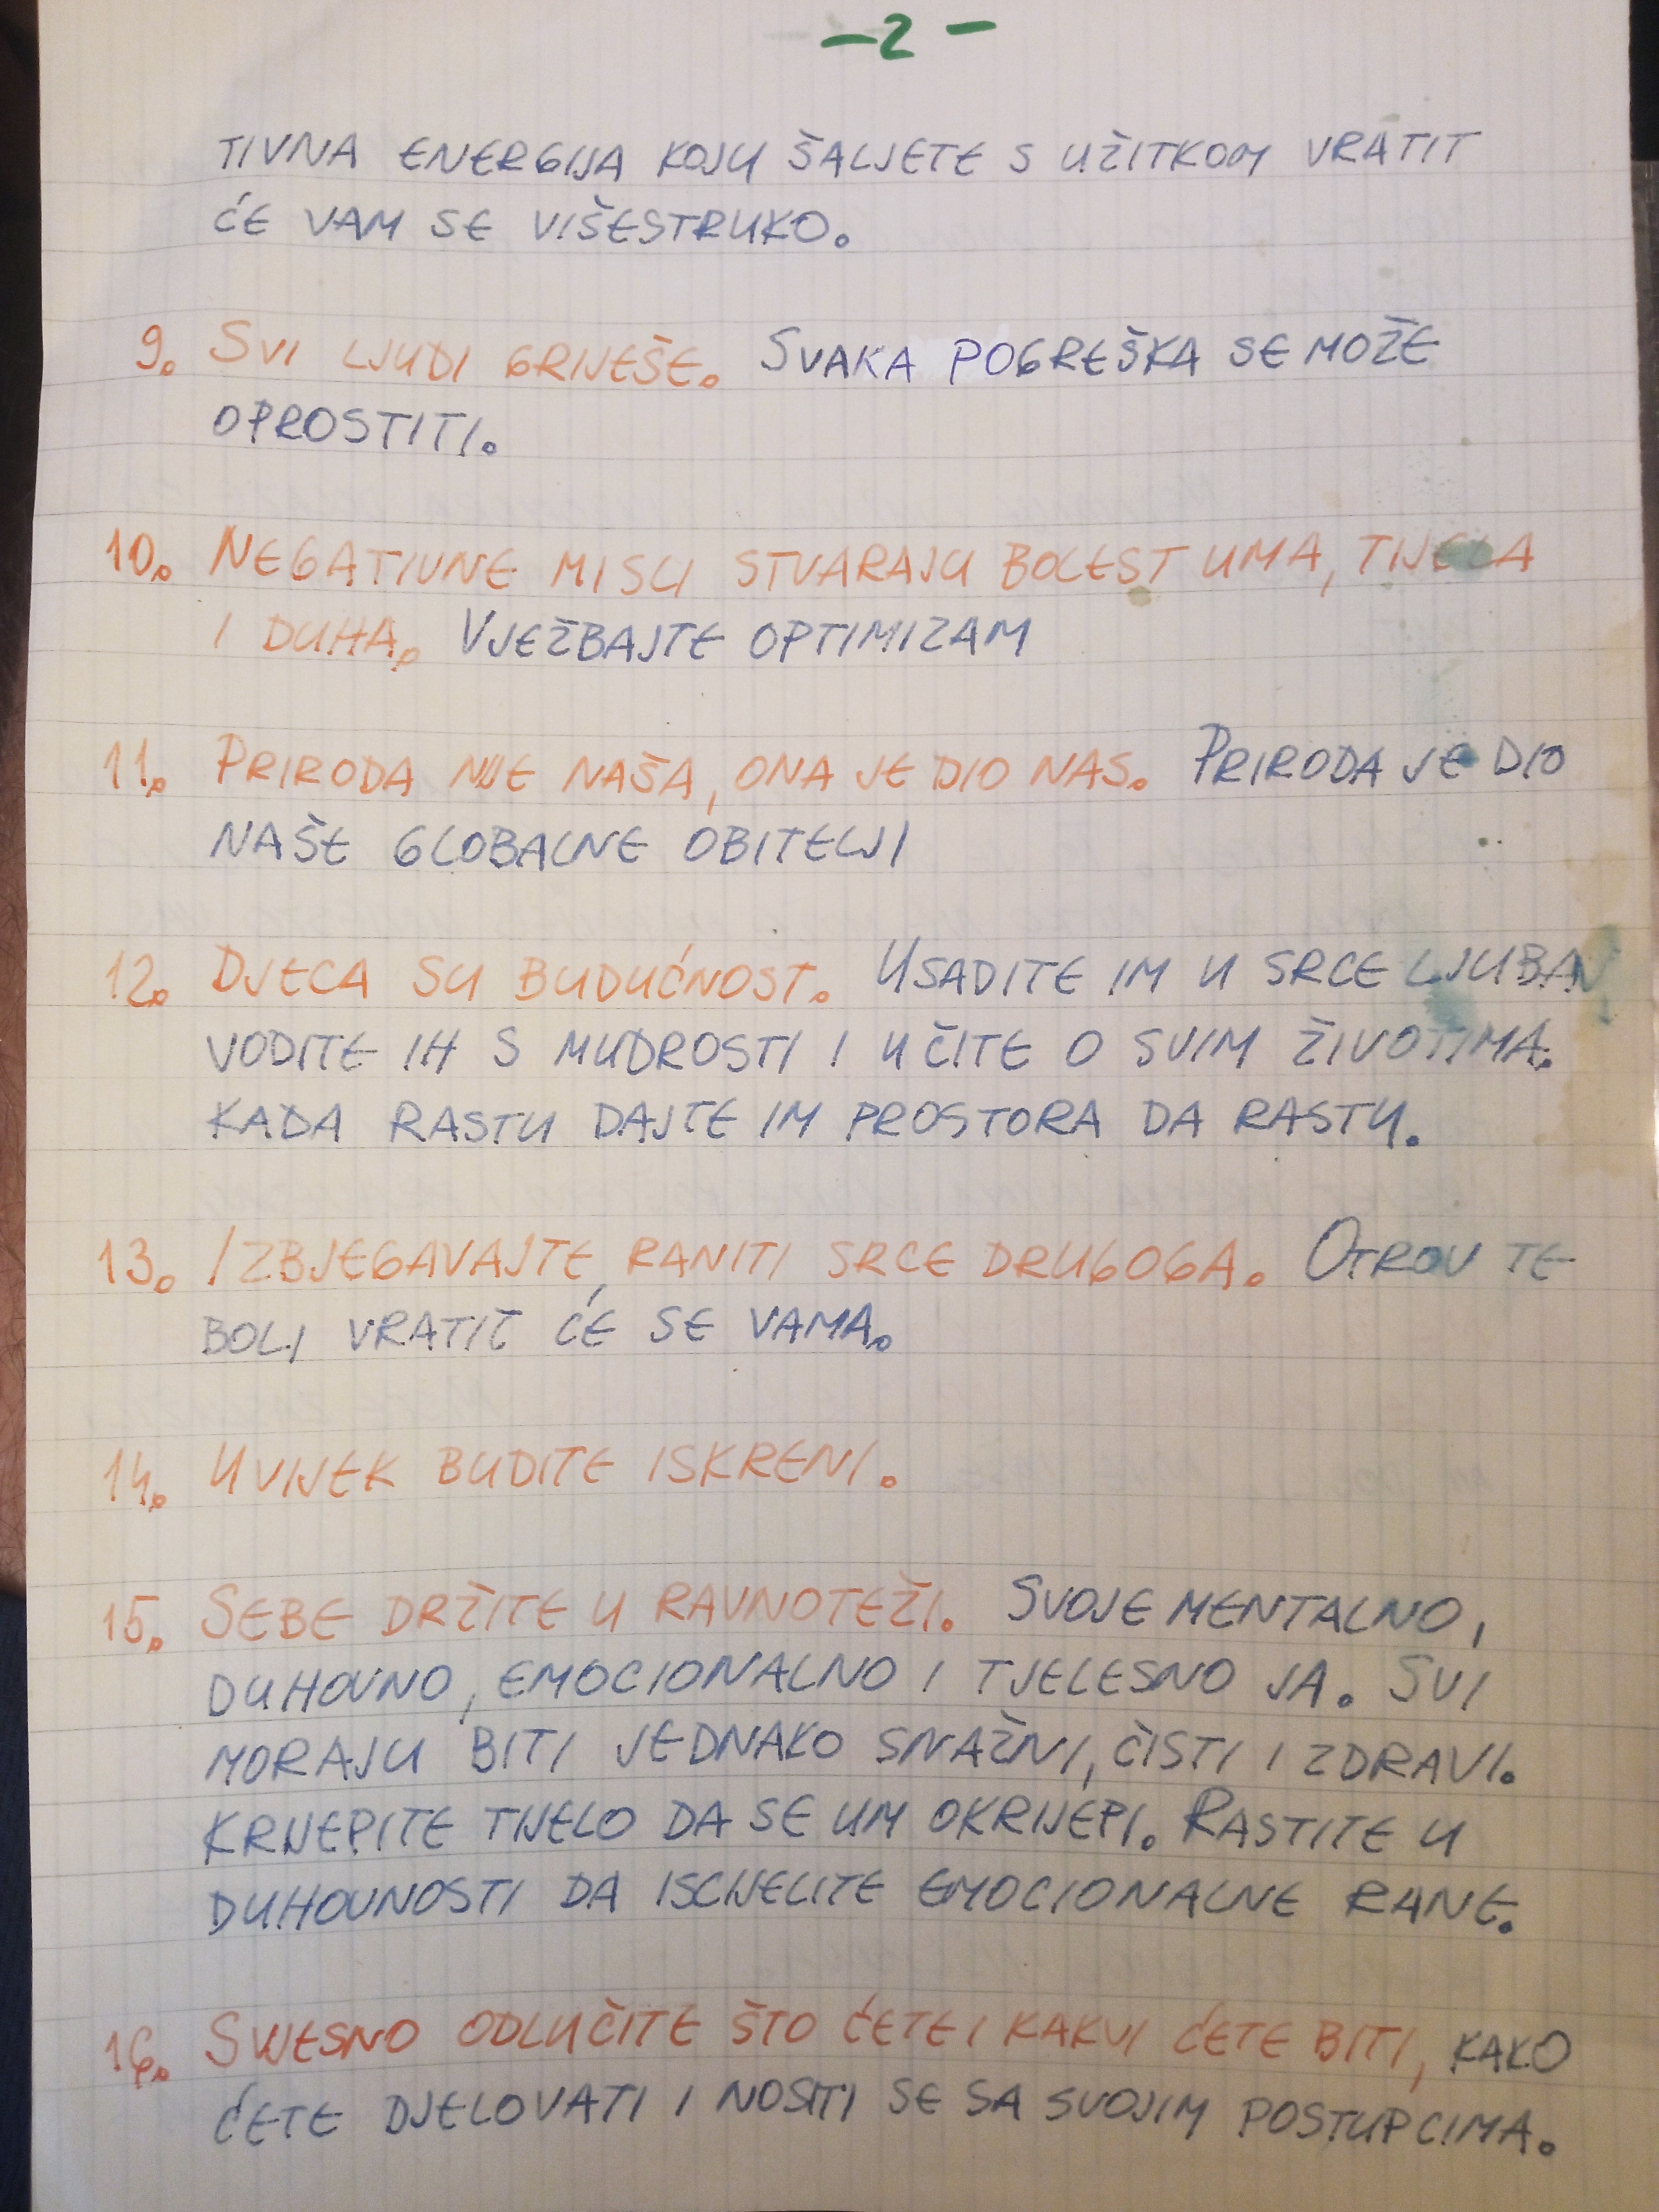 -2-
TIVNA ENERGIJA KOJU ŠALJETE S UŽITKOM VRATIT
ĆE VAM SE VIŠESTRUKO.
9. SVI LJUDI GRIJEŠE. SVAKA POGREŠKA SE MOŽE
OPROSTITI.
10. NEGATIVNE MISLI STVARAJU BOLEST UMA, TIJELA
I DUHA. VJEŽBAJTE OPTIMIZAM
11. PRIRODA NIJE NAŠA, ONA JE DIO NAS. PRIRODA JE DIO
NAŠE GLOBALNE OBITELJI
12. DJECA SU BUDUĆNOST. USADITE IM U SRCE LJUBAV,
VODITE IH S MUDROSTI I UČITE O SVIM ŽIVOTIMA.
KADA RASTU DAJTE IM PROSTORA DA RASTU.
13. IZBJEGAVAJTE RANITI SRCE DRUGOGA. OTROV TE
BOLI VRATIT ĆE SE VAMA.
14. UVIJEK BUDITE ISKRENI.
15. SEBE DRŽITE U RAVNOTEŽI. SVOJE MENTALNO,
DUHOVNO, EMOCIONALNO I TJELESNO JA. SVI
MORAJU BITI JEDNAKO SNAŽNI, ČISTI I ZDRAVI.
KRIJEPITE TIJELO DA SE UM OKRIJEPI. RASTITE U
DUHOVNOSTI DA ISCIJELITE EMOCIONALNE RANE.
16. SVJESNO ODLUČITE ŠTO ĆETE I KAKVI ĆETE BITI, KAKO
ĆETE DJELOVATI I NOSITI SE SA SVOJIM POSTUPCIMA.